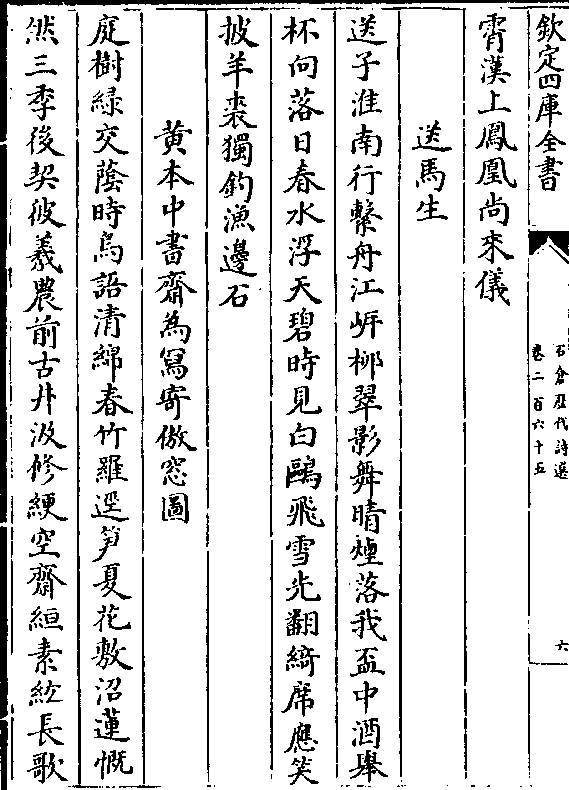 欽定四庫全書
石倉歷代詩選
卷二百六十五
六
霄漢上鳳凰尚來儀
送馬生
送子淮南行繫舟江㟁栁翠影舞晴煙落我盃中酒舉
杯向落日春水浮天碧時見白鷗飛雪光翻綺席應笑
披羊裘獨釣漁邊石
黄本中書齋為冩寄傲窓圖
庭樹緑交蔭時鳥語清綿春竹羅逕笋夏花敷沼蓮慨
然三季後契彼羲農前古井汲修綆空齋絙素絃長歌